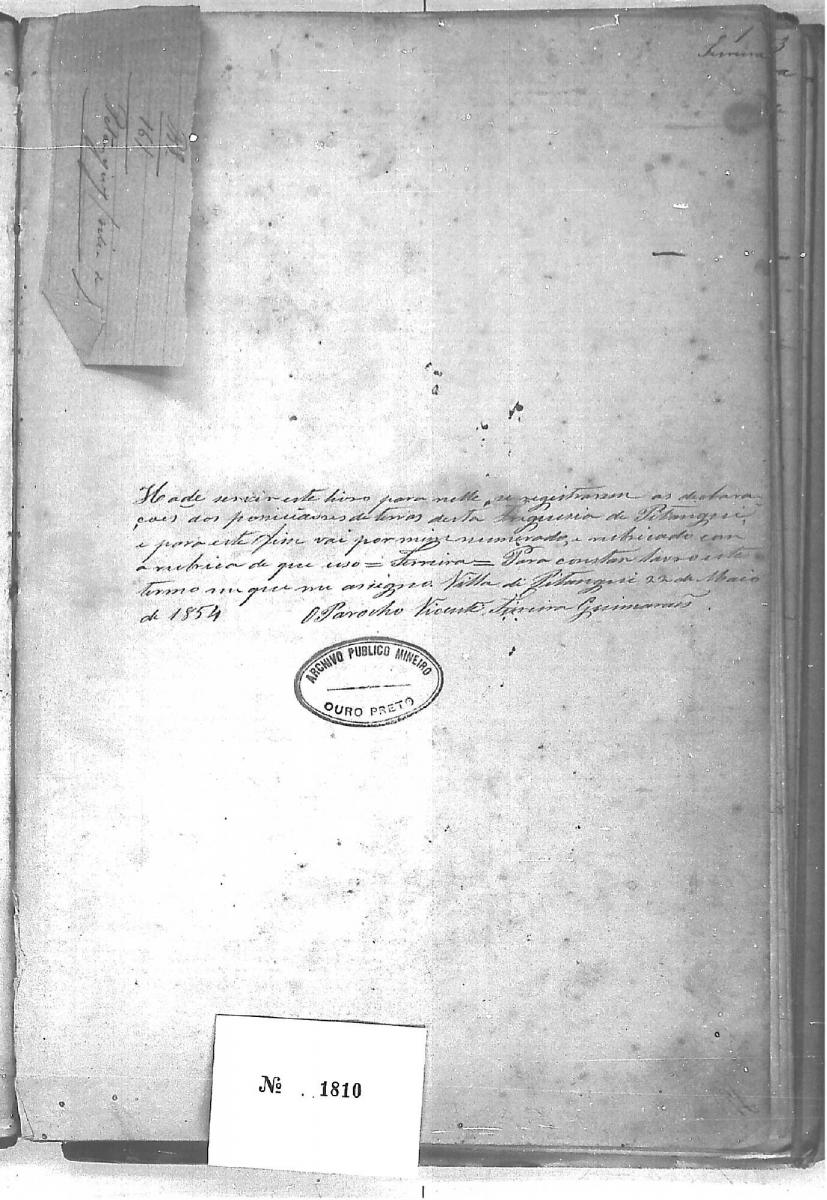 1
Ferreira
161
Hade servir este livro para nelle se registrarem as declara
ções dos possuidores de terras desta Freguesia de Pitangui,
e para este fim vai por mim numerado, e rubricado com
a rubrica de que uso = Ferreira = Para constar lavro este
termo em que me assigno. Villa de Pitangui 22 de Maio
de 1854 O Parocho Vicente Ferreira Guimarães.
ARCHIVO PUBLICO MINEIRO
OURO PRETO
Nº 1810